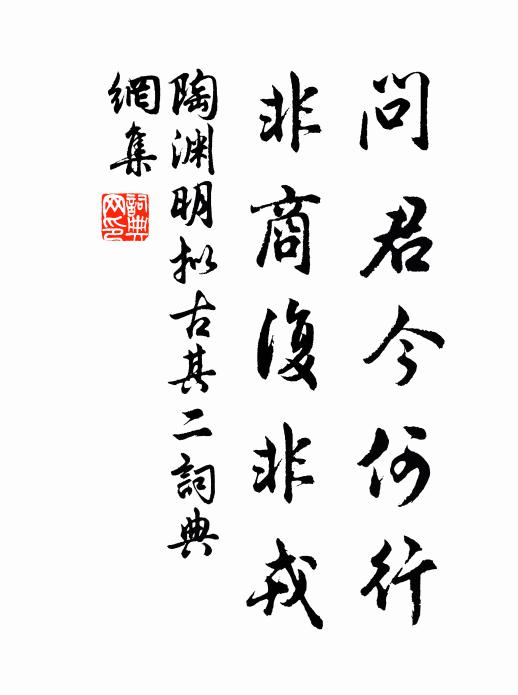 問君今何行
非商復非戎
陶渊明拟古其二詞典
網集
詞典
网印